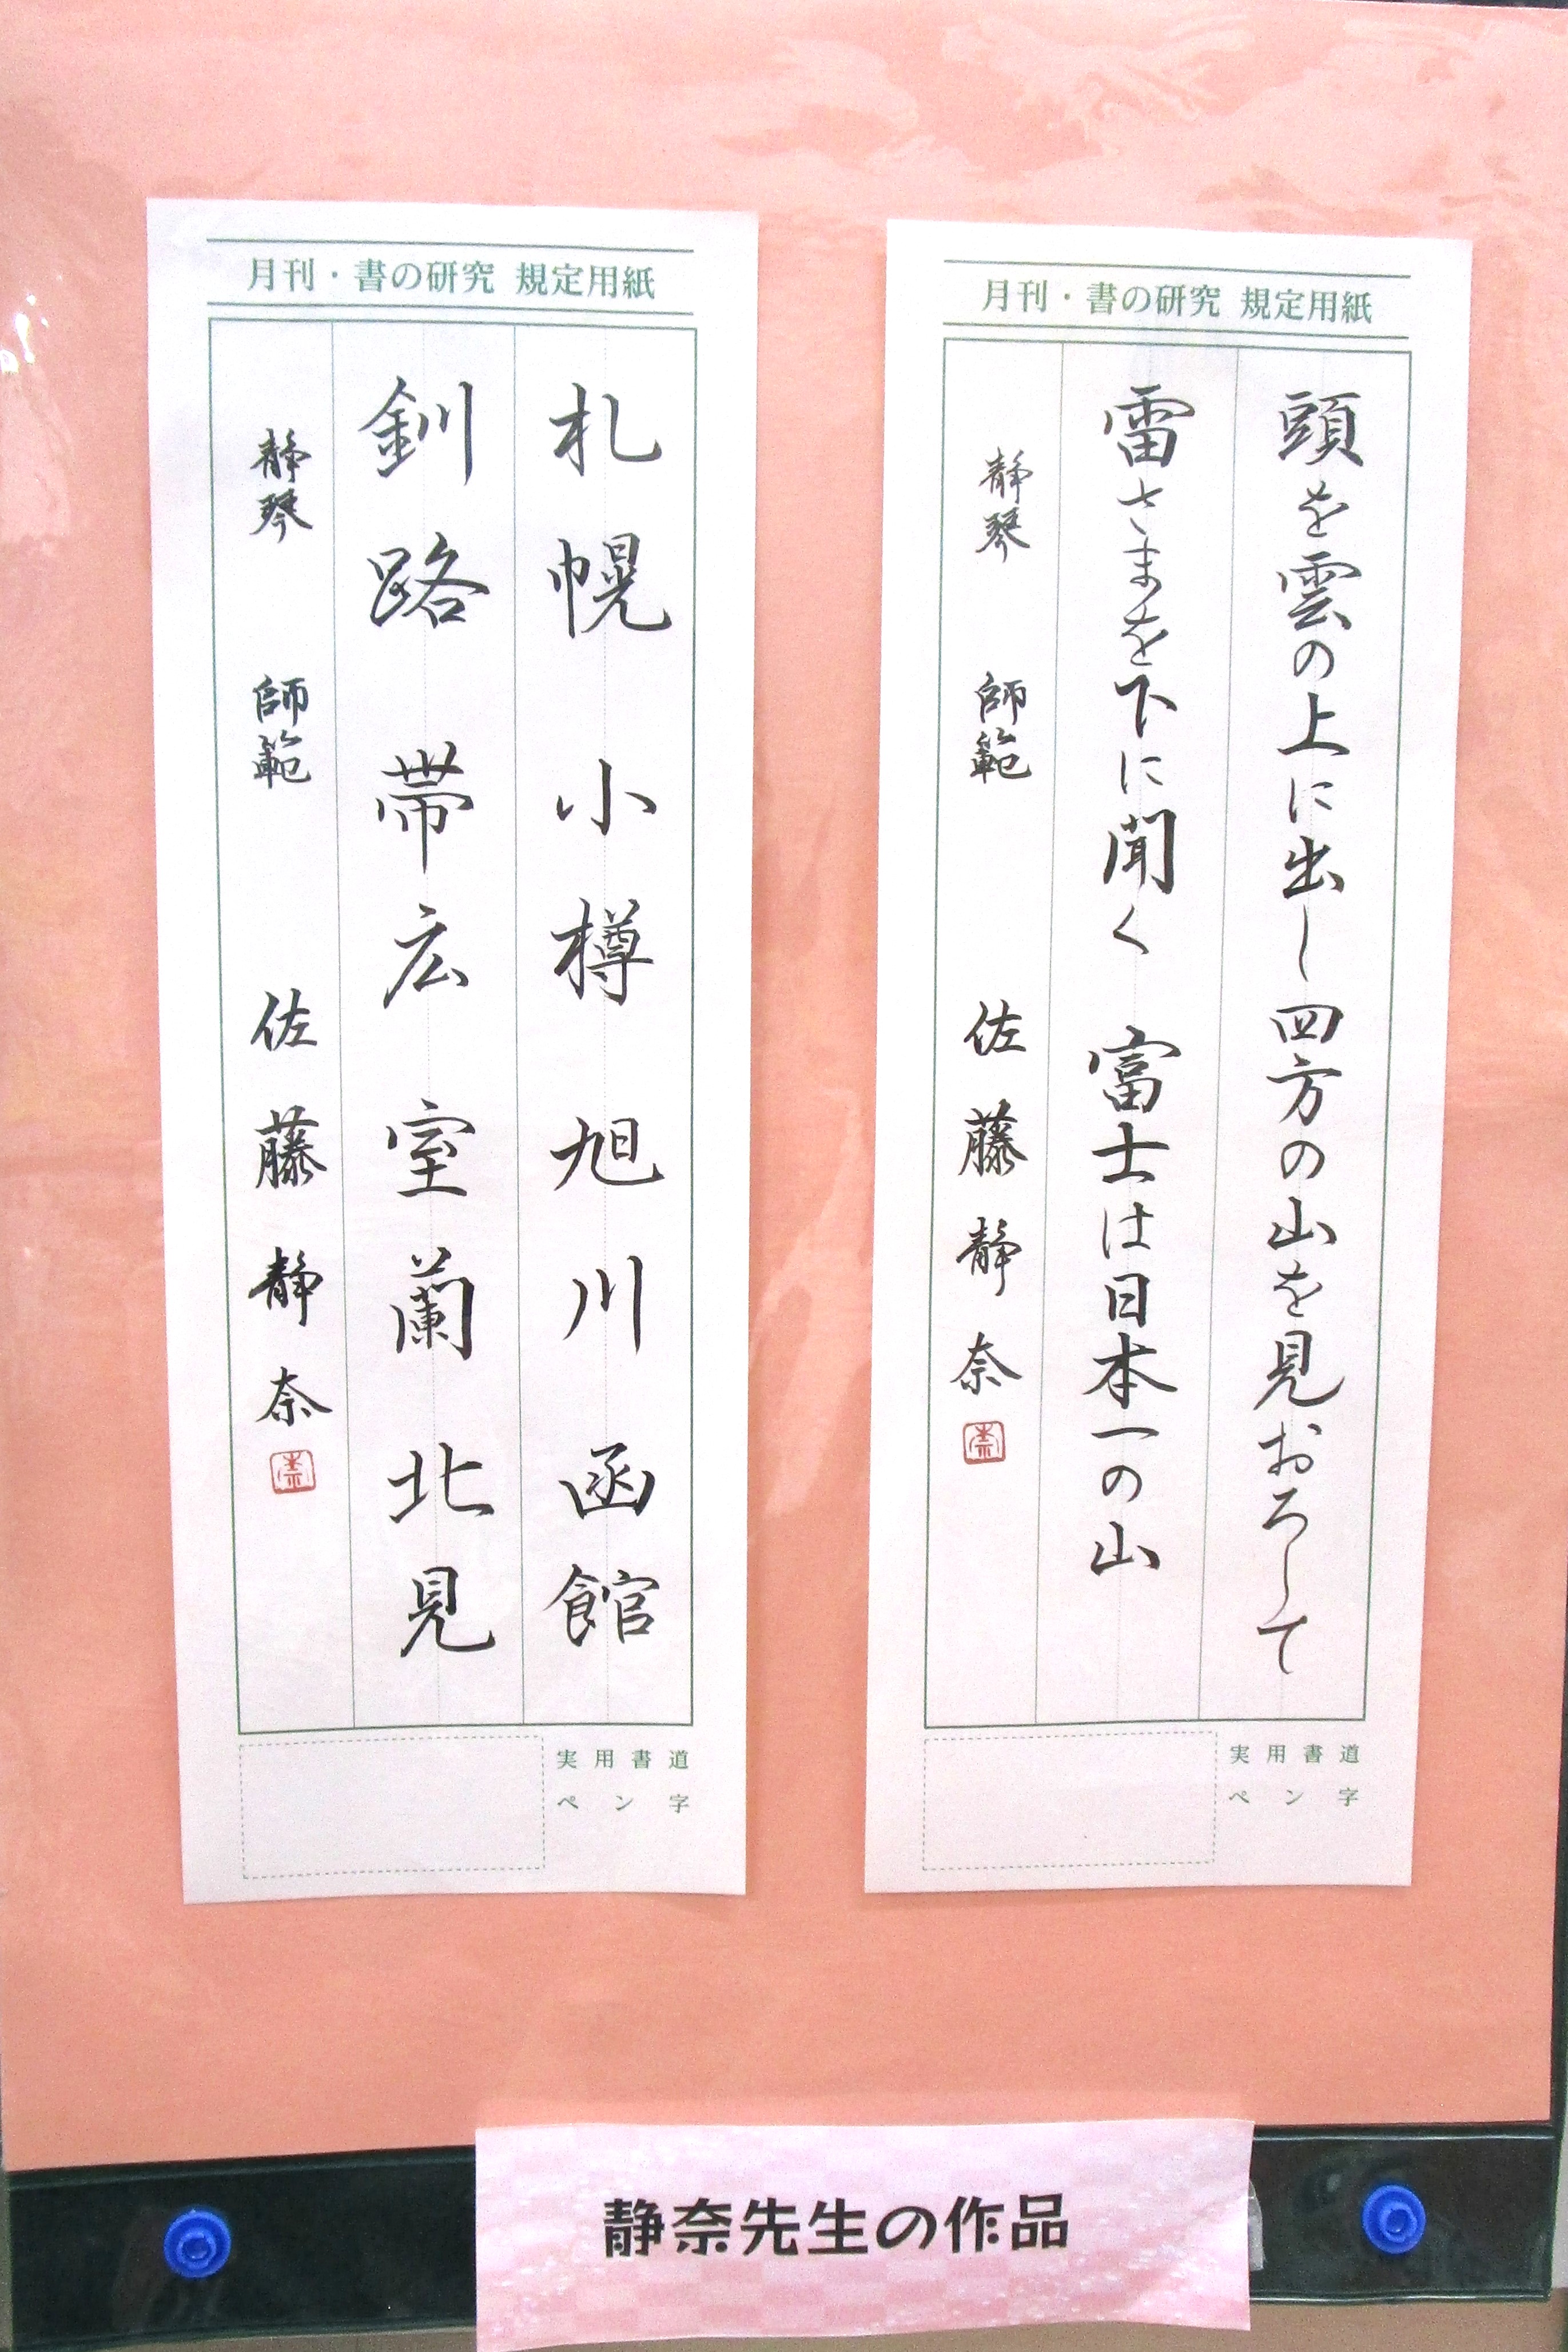 月刊・書の研究 規定用紙
頭を雲の上に出し四方の山を見おろして
雷さまを下に聞く 富士は日本一の山
静琴 師範 佐藤静奈
実用書道
ペン字
月刊・書の研究 規定用紙
札幌 小樽 旭川 函館
釧路 帯広 室蘭 北見
静琴 師範 佐藤静奈
実用書道
ペン字
静奈先生の作品